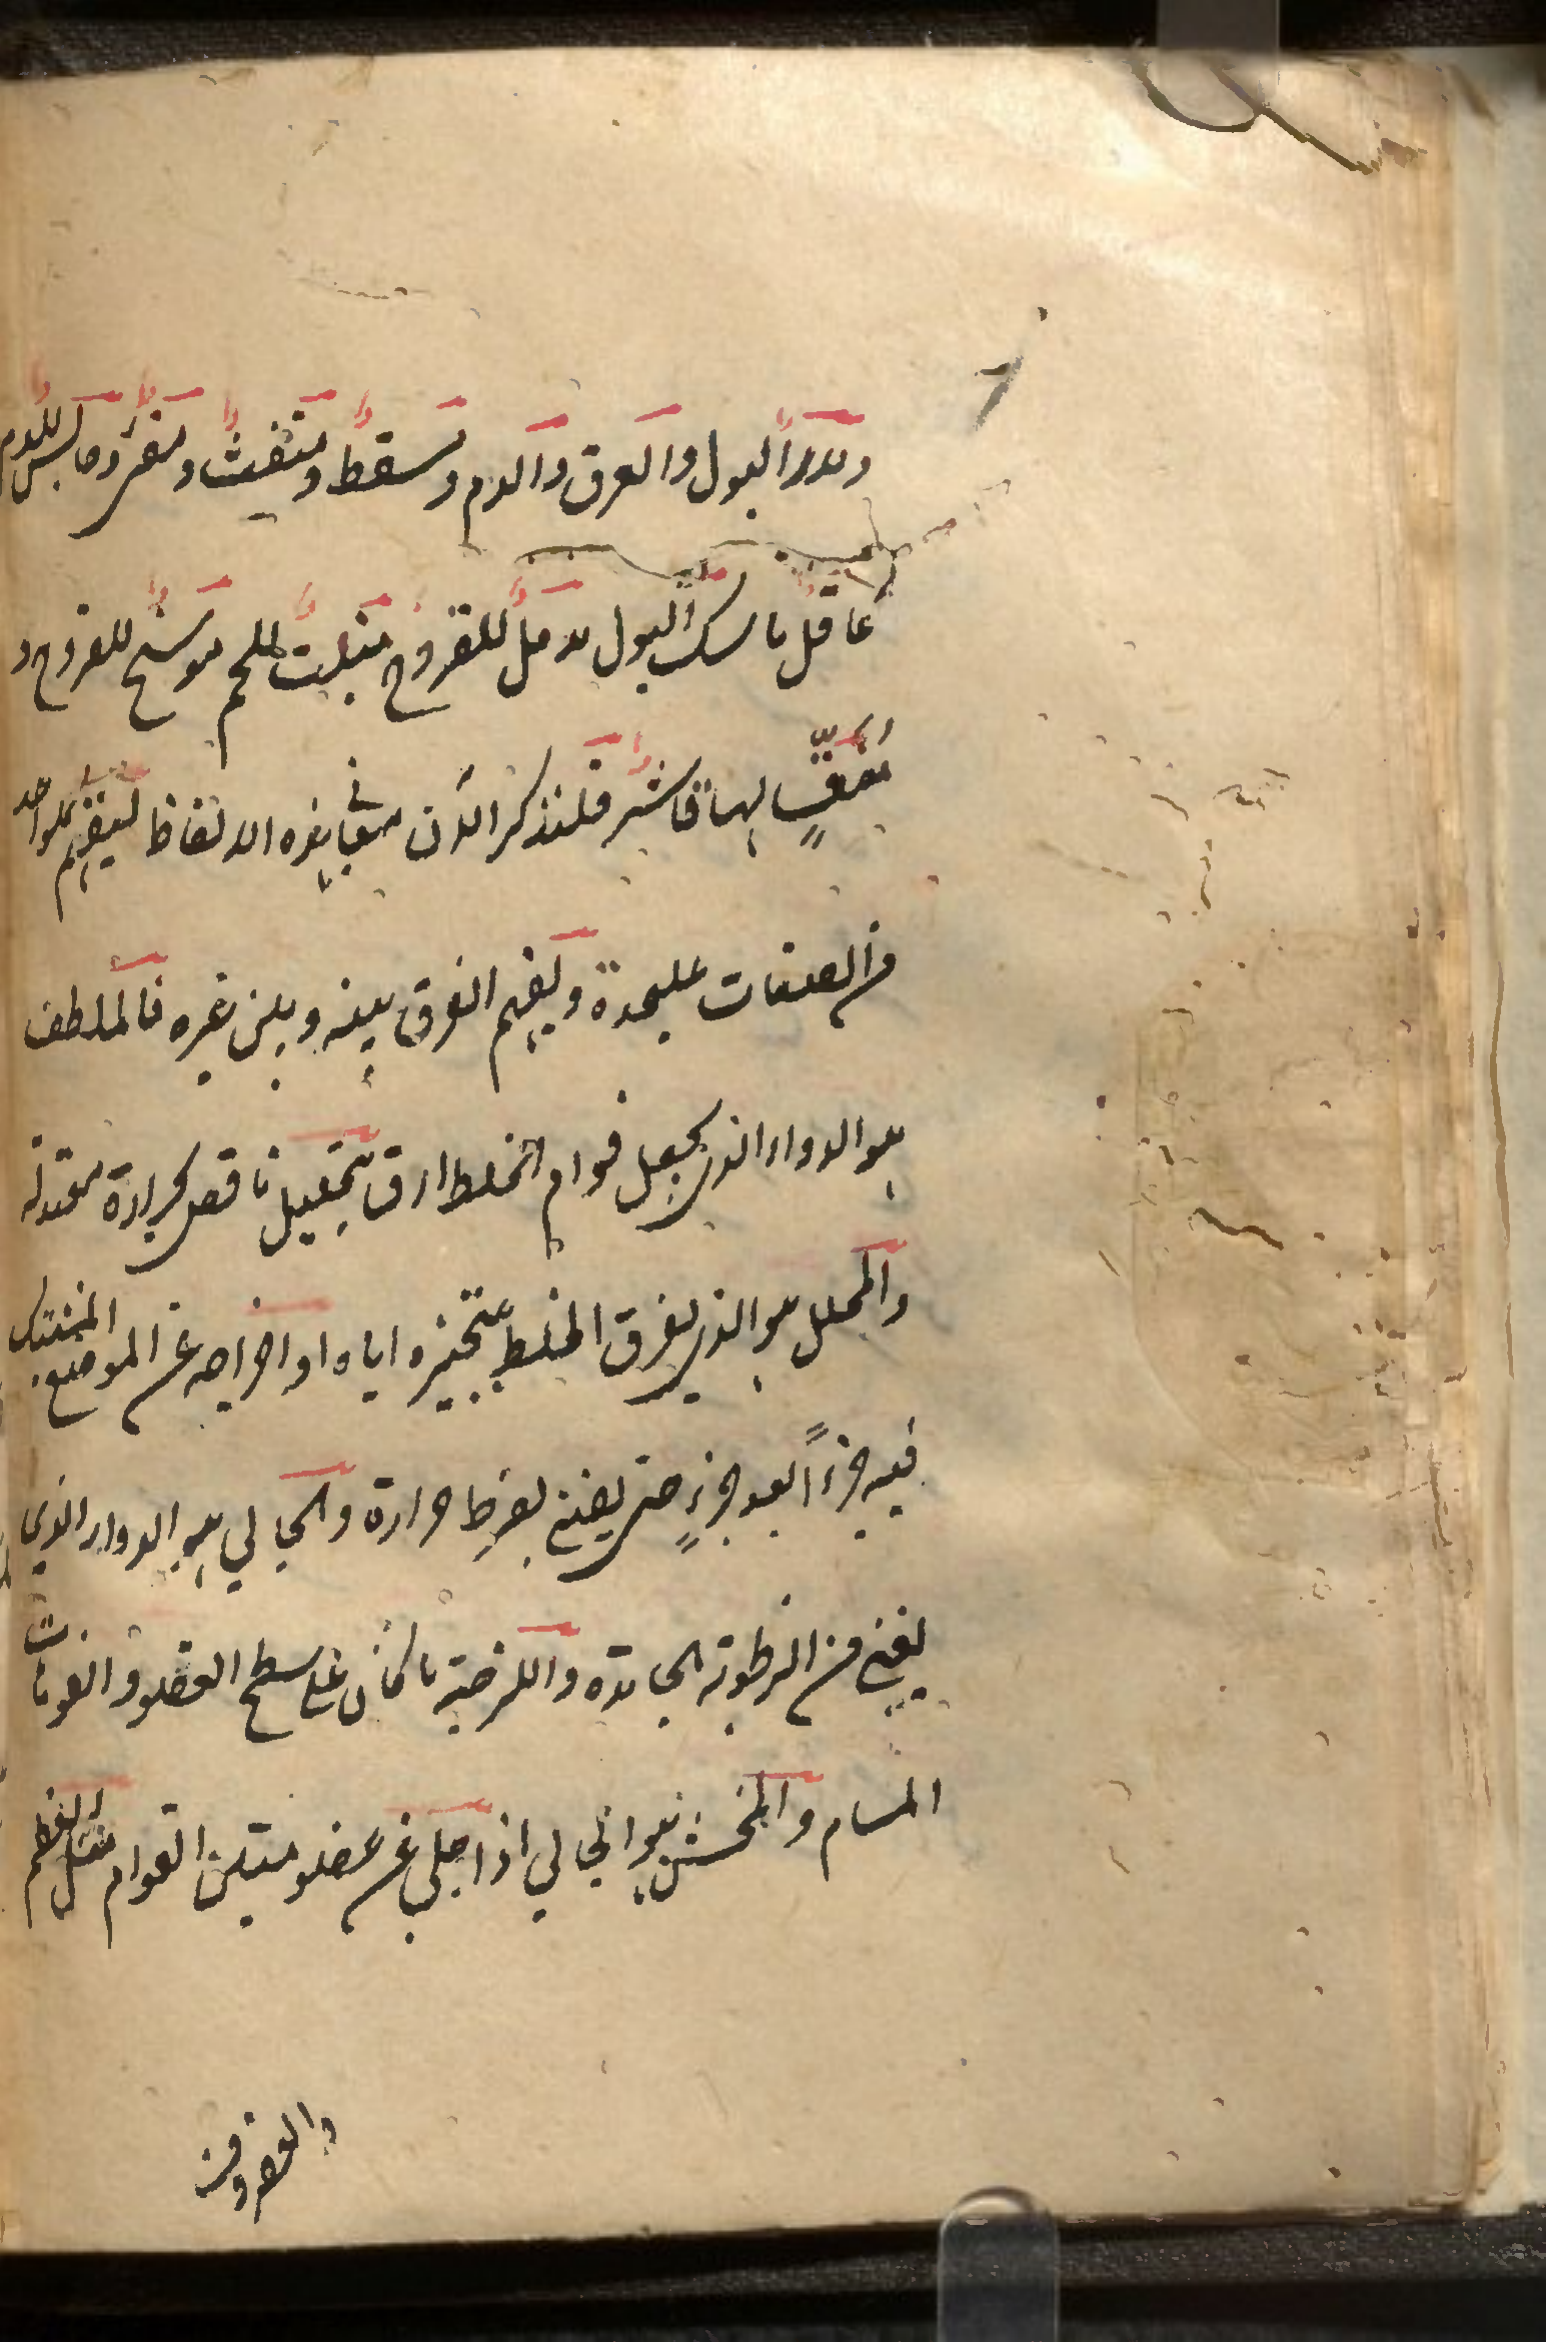 ومدراً البول والعرق والدم ومسقط ومتفتت ومقشر وحابس للدم
عاقل ماسك البول مدمل للقروح منبت للحم موسخ للقروح و
فلنذكر الآن معاني هذه الالفاظ ليفهم كلواحد
من الصفات عليحدة ويفهم الفرق بينه وبين غيره فالملطف
هو الدواء الذي يجعل قوام الخلط ارق بحرارة معتدلة
والمحلل هو الذي يفرق الخلط بتبخيره اياه او اخراجه عن الموضع المشتبك
فيه جزءاً بعد جزءٍ حتى يفنى بفرط حرارة والجالي هو الدواء الذي
يفني من الرطوبة الجامدة واللزجة ما كان على سطح العضو وافوهات
المسام والمخشن هو الجالي اذا جلى عن عضو متين القوام مثل العظم
والغضروف